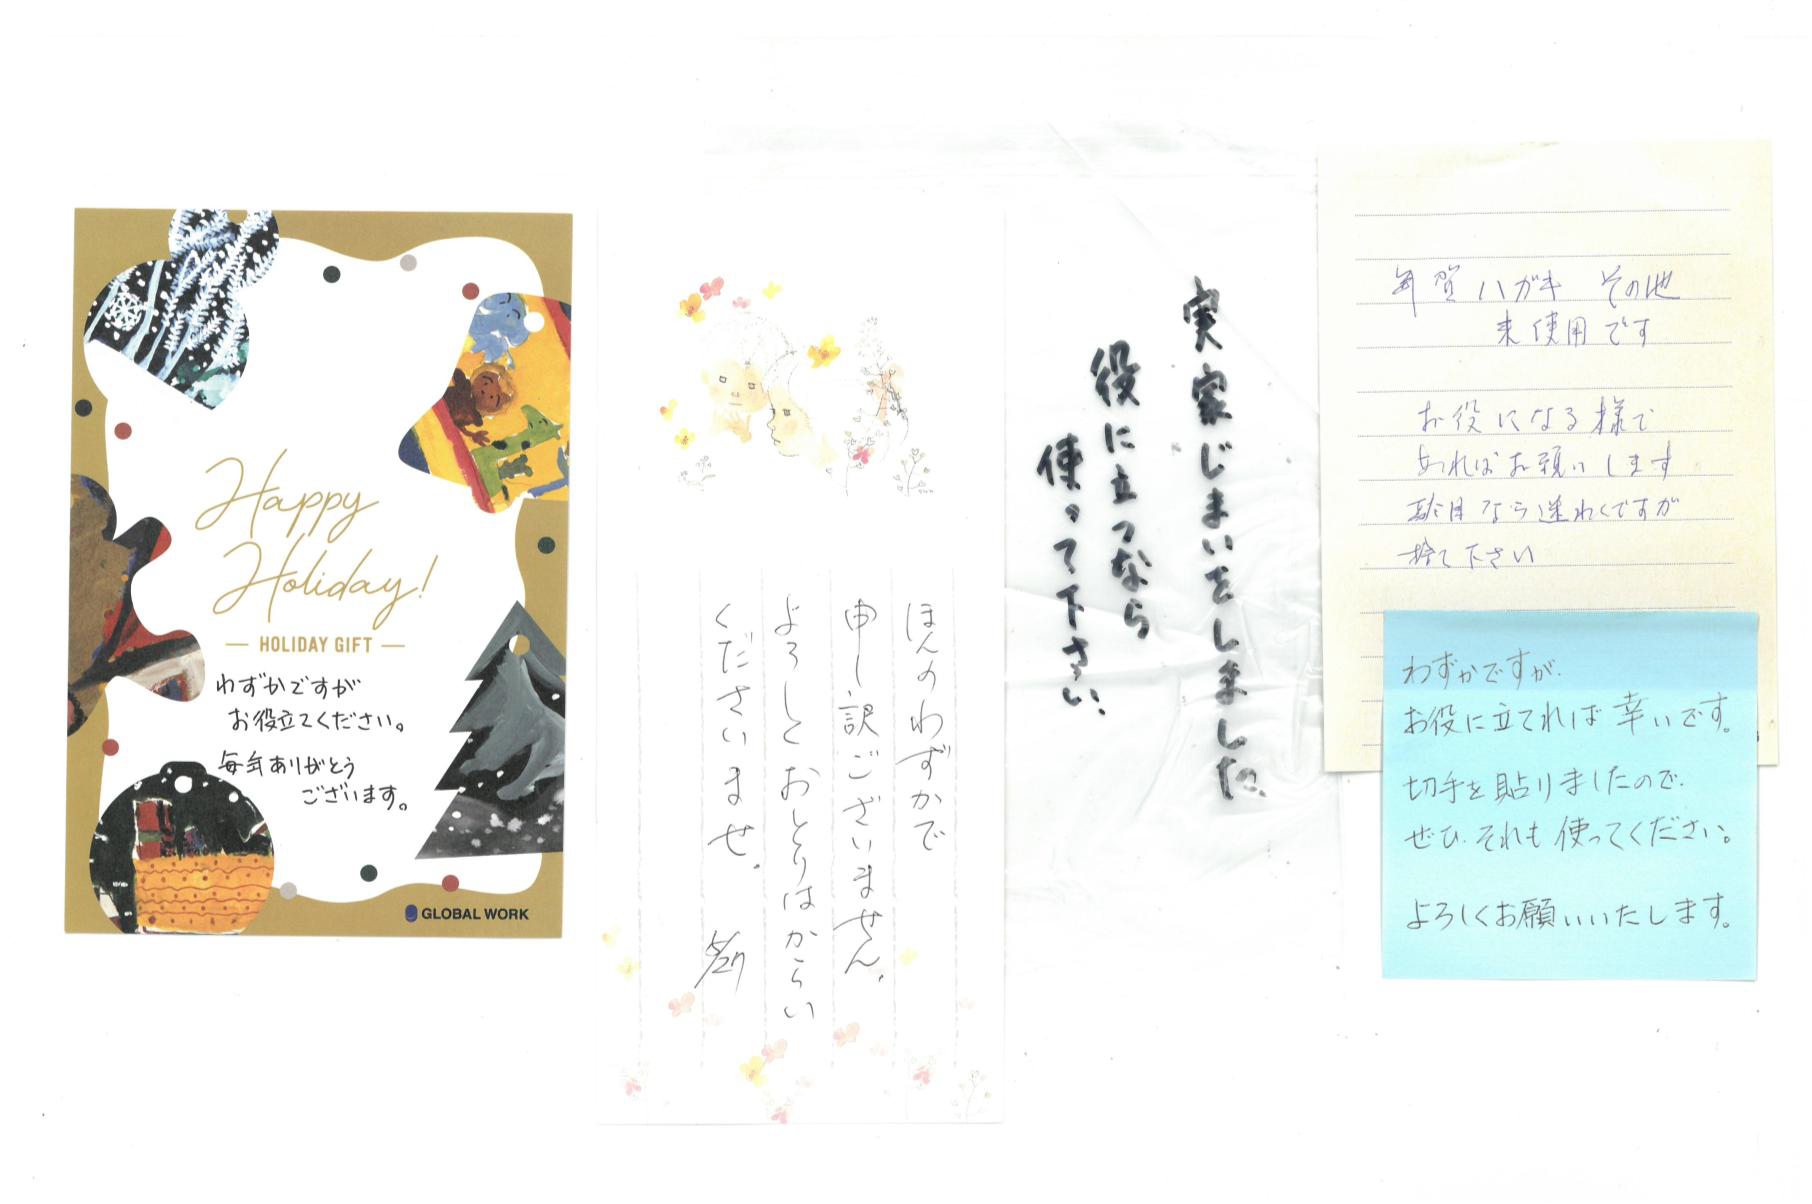 Happy
Holiday!
HOLIDAY GIFT
わずかですが
お役立てください。
毎年ありがとう
ございます。
GLOBAL WORK
ほんのわずかで
申し訳ございません。
よろしくおとりはからい
くださいませ。
5/27
実家じまいをしました
役に立つなら
使って下さい、
年賀ハガキ その他
未使用です
お役になる様で
あればお願いします
駄目なら遠れくですが
捨て下さい
わずかですが、
お役に立てれば幸いです。
切手を貼りましたので、
ぜひ、それも使ってください。
よろしくお願いいたします。